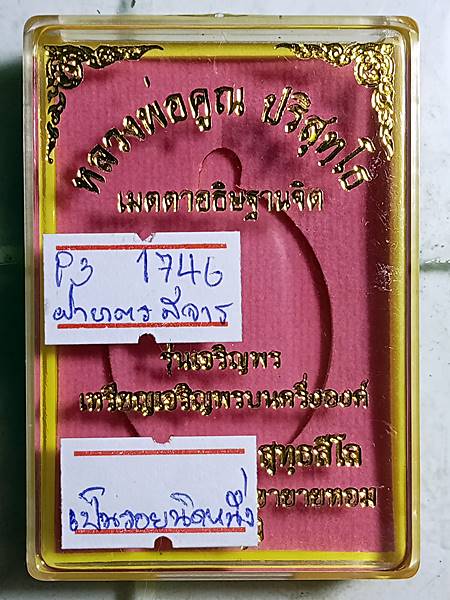 หลวงพ่อคูณ ปริสุทโธ
เมตตาอธิษฐานจิต
P3 1746
ฝาบาตร มีจาร
รุ่นเจริญพร
เหรียญเจริญพรบนครึ่งองค์
สุทธสีโล
เป็นรอยนิดหนึ่ง